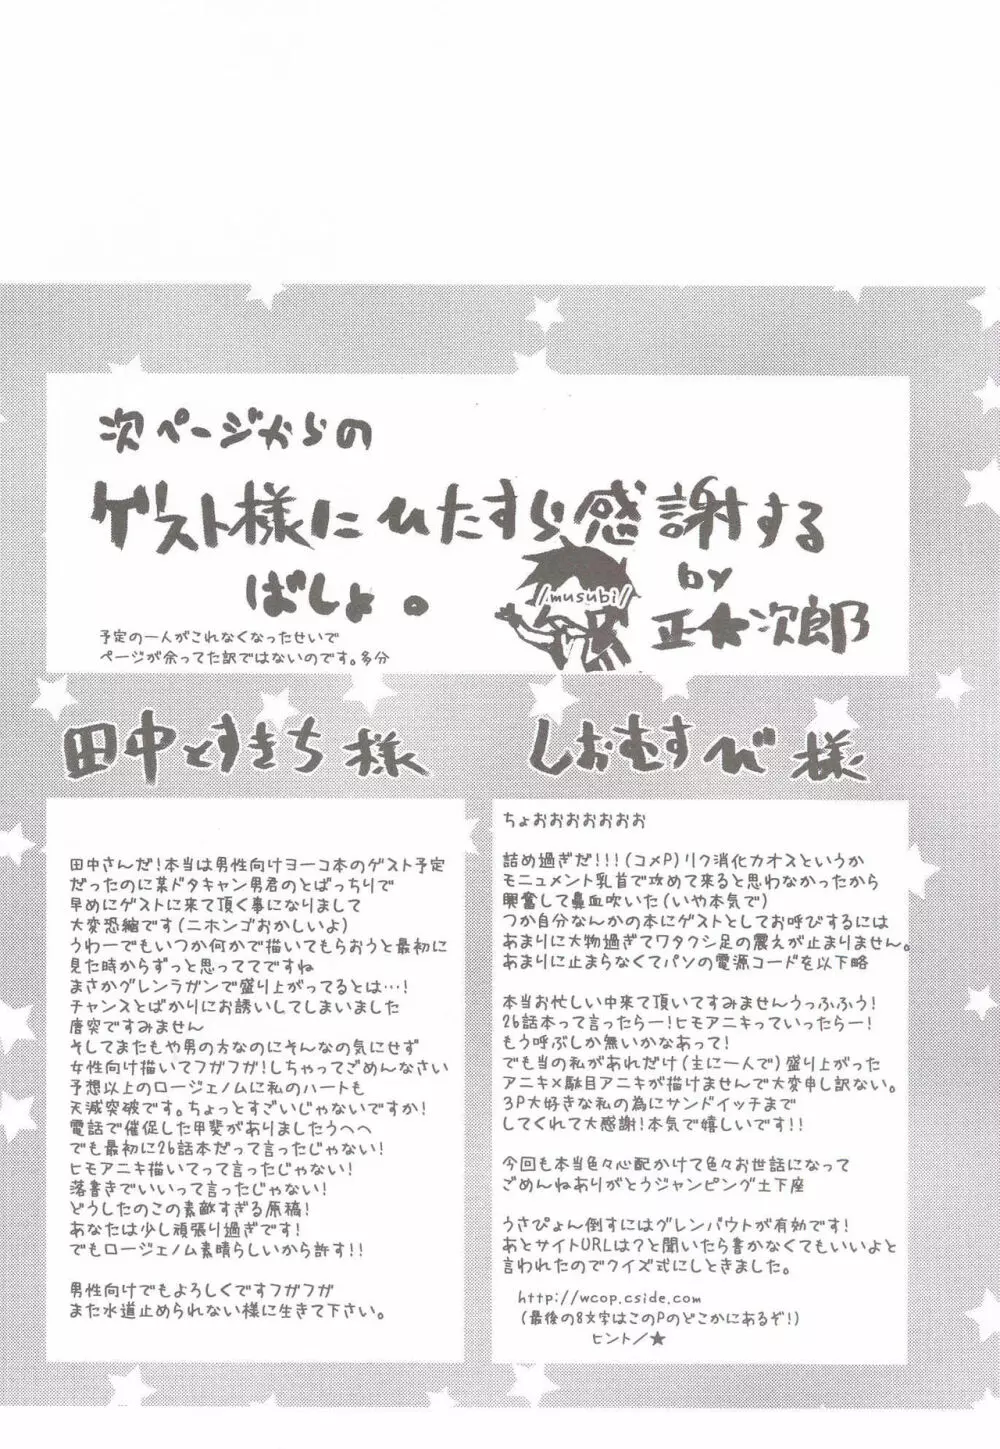 次ページからの
ゲスト様にひたすら感謝する
ばしょ。
by
正★次郎
/musubi/
予定の一人がこれなくなったせいで
ページが余ってた訳ではないのです。多分
田中とすきち様
田中さんだ！本当は男性向けヨーコ本のゲスト予定
だったのに某ドタキャン男君のとばっちりで
早めにゲストに来て頂く事になりまして
大変恐縮です(ニホンゴおかしいよ)
うわーでもいつか何かで描いてもらおうと最初に
見た時からずっと思っててですね
まさかグレンラガンで盛り上がってるとは…！
チャンスとばかりにお誘いしてしまいました
唐突ですみません
そしてまたもや男の方なのにそんなの気にせず
女性向け描いてフガフガ！しちゃってごめんなさい
予想以上のロージェノムに私のハートも
天減突破です。ちょっとすごいじゃないですか！
電話で催促した甲斐がありましたうへへ
でも最初に26話本だって言ったじゃない！
ヒモアニキ描いてって言ったじゃない！
落書きでいいって言ったじゃない！
どうしたのこの素敵すぎる原稿！
あなたは少し頑張り過ぎです！
でもロージェノム素晴らしいから許す！！
男性向けでもよろしくですフガフガ
また水道止められない様に生きて下さい。
しおむすび様
ちょおおおおおおお
詰め過ぎだ！！！(コメP)リク消化カオスというか
モニュメント乳首で攻めて来ると思わなかったから
興奮して鼻血吹いた(いや本気で)
つか自分なんかの本にゲストとしてお呼びするには
あまりに大物過ぎてワタクシ足の震えが止まりません。
あまりに止まらなくてパソの電源コードを以下略
本当お忙しい中来て頂いてすみませんうっふふう！
26話本って言ったらー！ヒモアニキっていったらー！
もう呼ぶしか無いかなあって！
でも当の私があれだけ(主に一人で)盛り上がった
アニキ×駄目アニキが描けませんで大変申し訳ない。
3P大好きな私の為にサンドイッチまで
してくれて大感謝！本気で嬉しいです！！
今回も本当色々心配かけて色々お世話になって
ごめんねありがとうジャンピング土下座
うさぴょん倒すにはグレンパウトが有効です！
あとサイトURLは？と聞いたら書かなくてもいいよと
言われたのでクイズ式にしときました。
http://wcop.cside.com
(最後の8文字はこのPのどこかにあるぞ！)
ヒント／★